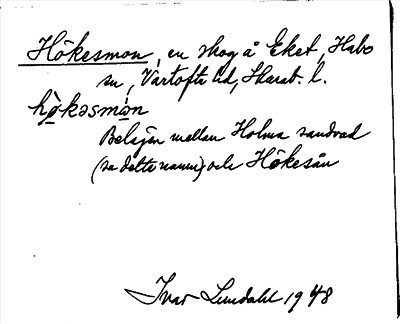 Hökesmon, en skog å Eket, Habo
sn, Vartofta hd, Skarab. l.
hö̀kəsmón
Belägen mellan Holma sandvad
(se detta namn) och Hökesån
Ivar Lundahl 1948